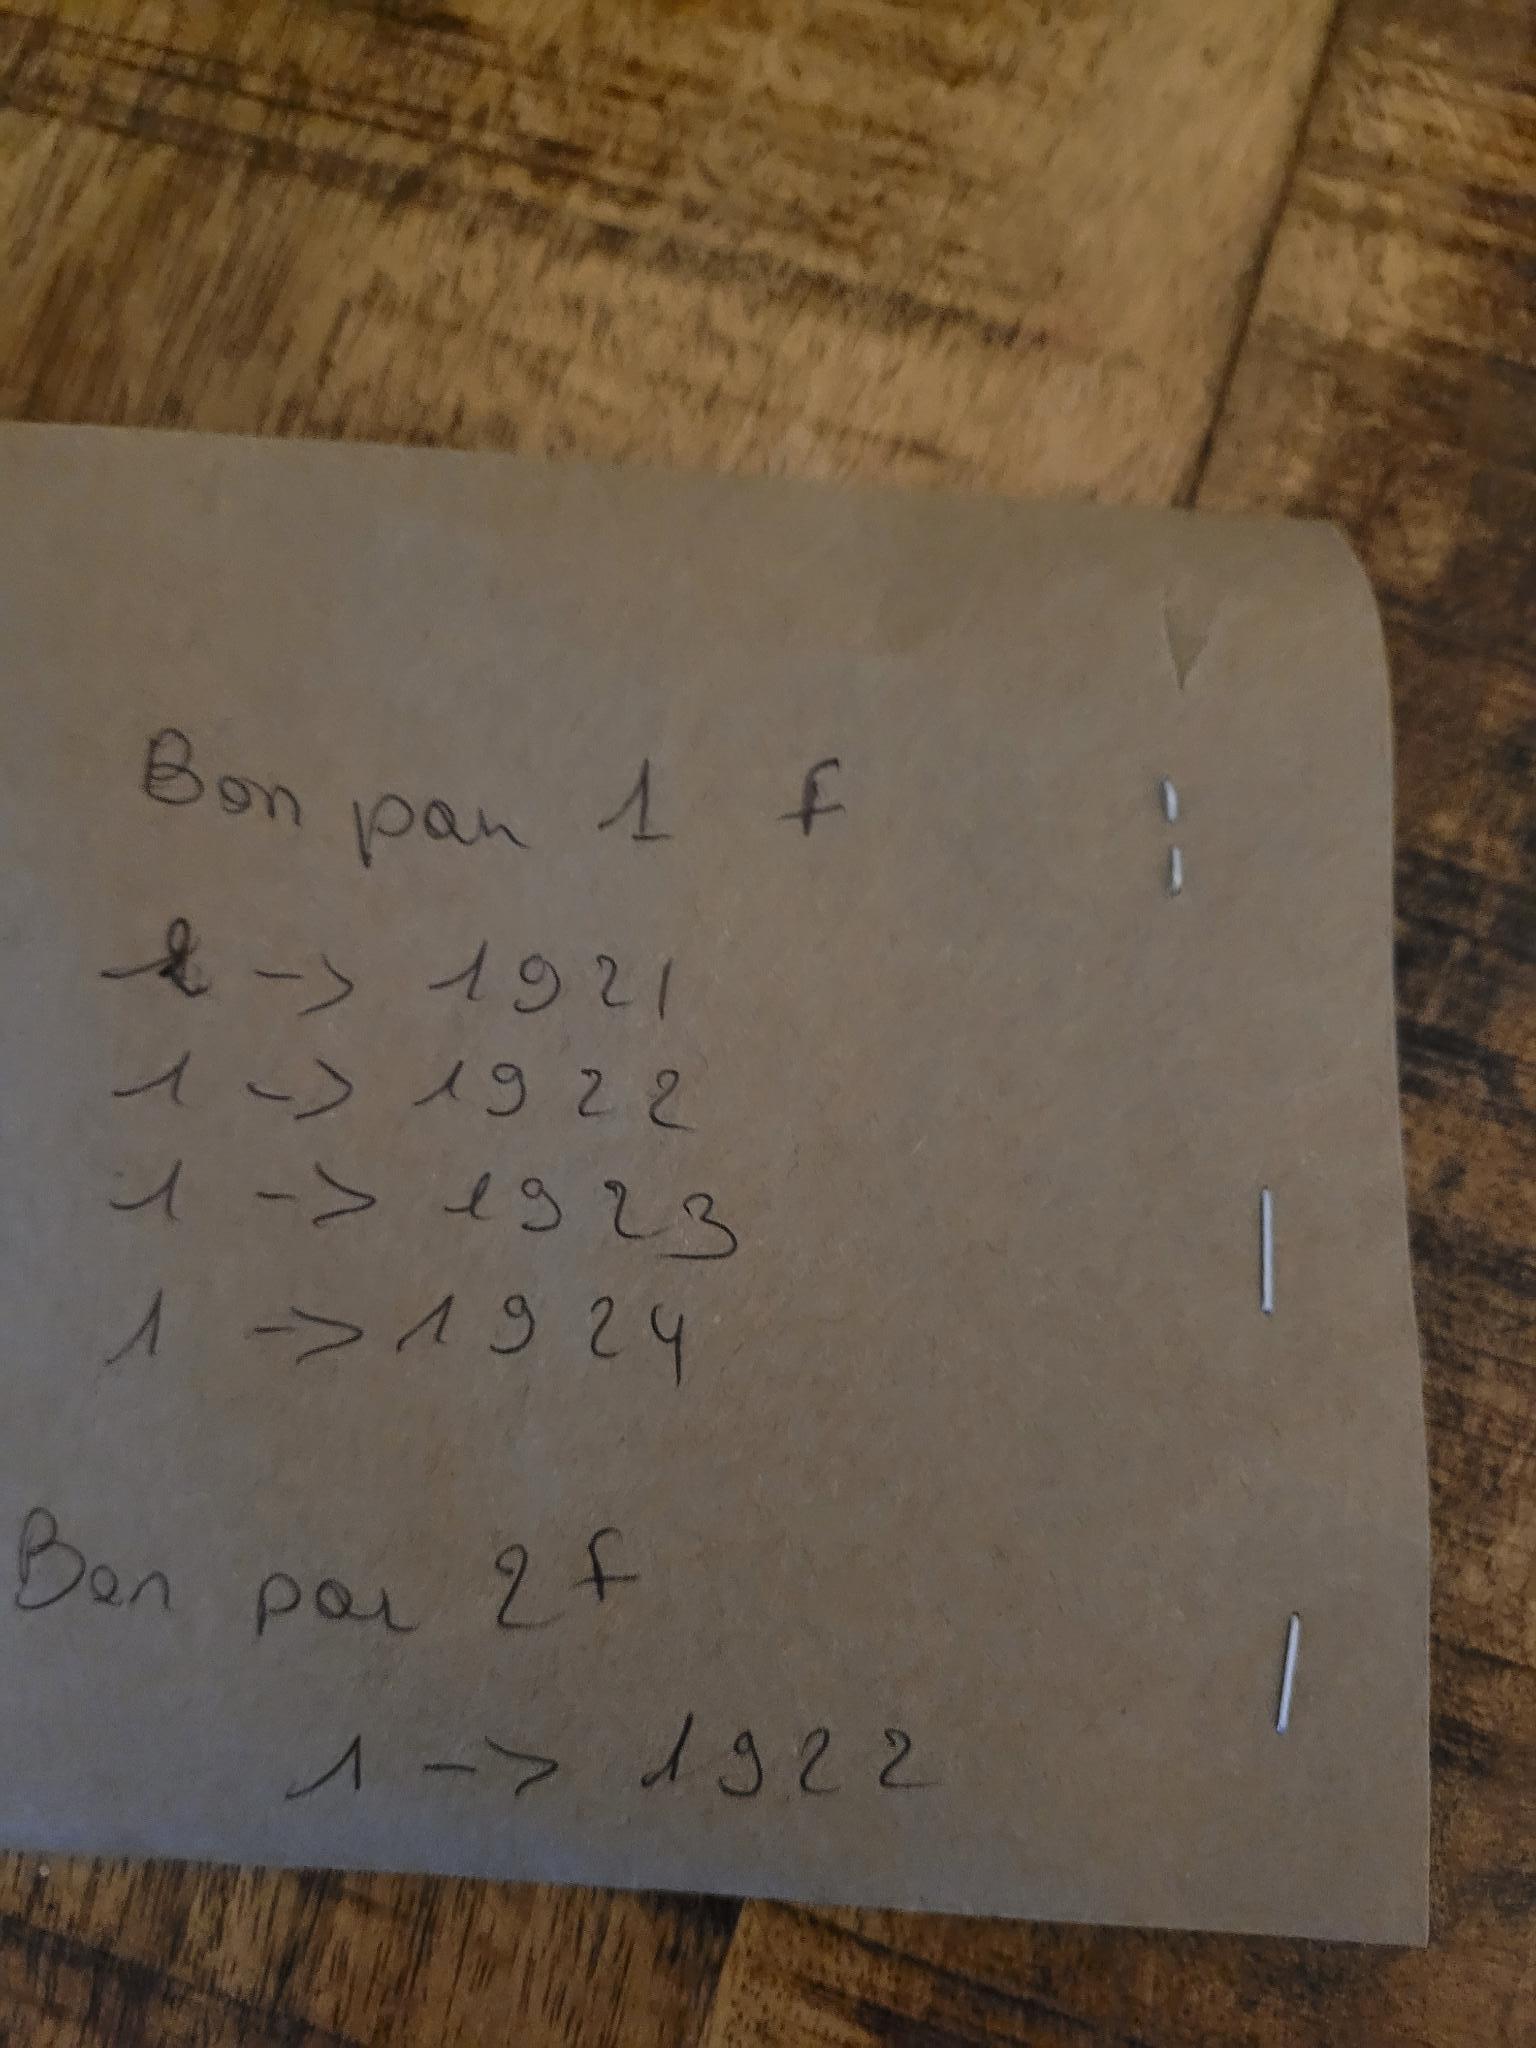 Bon par 1 f
2 -> 1921
1 -> 1922
1 -> 1923
1 -> 1924
Bon par 2 f
1 -> 1922